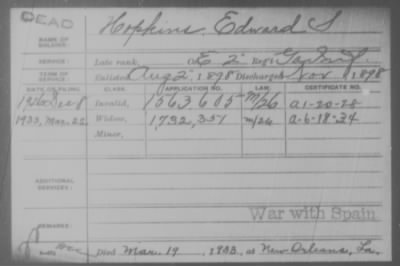 DEAD
NAME OF SOLDIER: Hopkins, Edward S
SERVICE: Late rank, Co. E 2 Reg't Ga. Inf.
TERM OF SERVICE: Enlisted Aug 2, 1898 Discharged Nov , 1898
DATE OF FILING CLASS. APPLICATION NO. LAW. CERTIFICATE NO.
1926 Dec 8 Invalid, 1563605 M/26 a1-20-28
1933, Mar. 25 Widow, 1,732,351 m/26 a-6-18-34
Minor,
ADDITIONAL SERVICES:
War with Spain
REMARKS:
Died Mar. 19, 1933, at New Orleans, La.